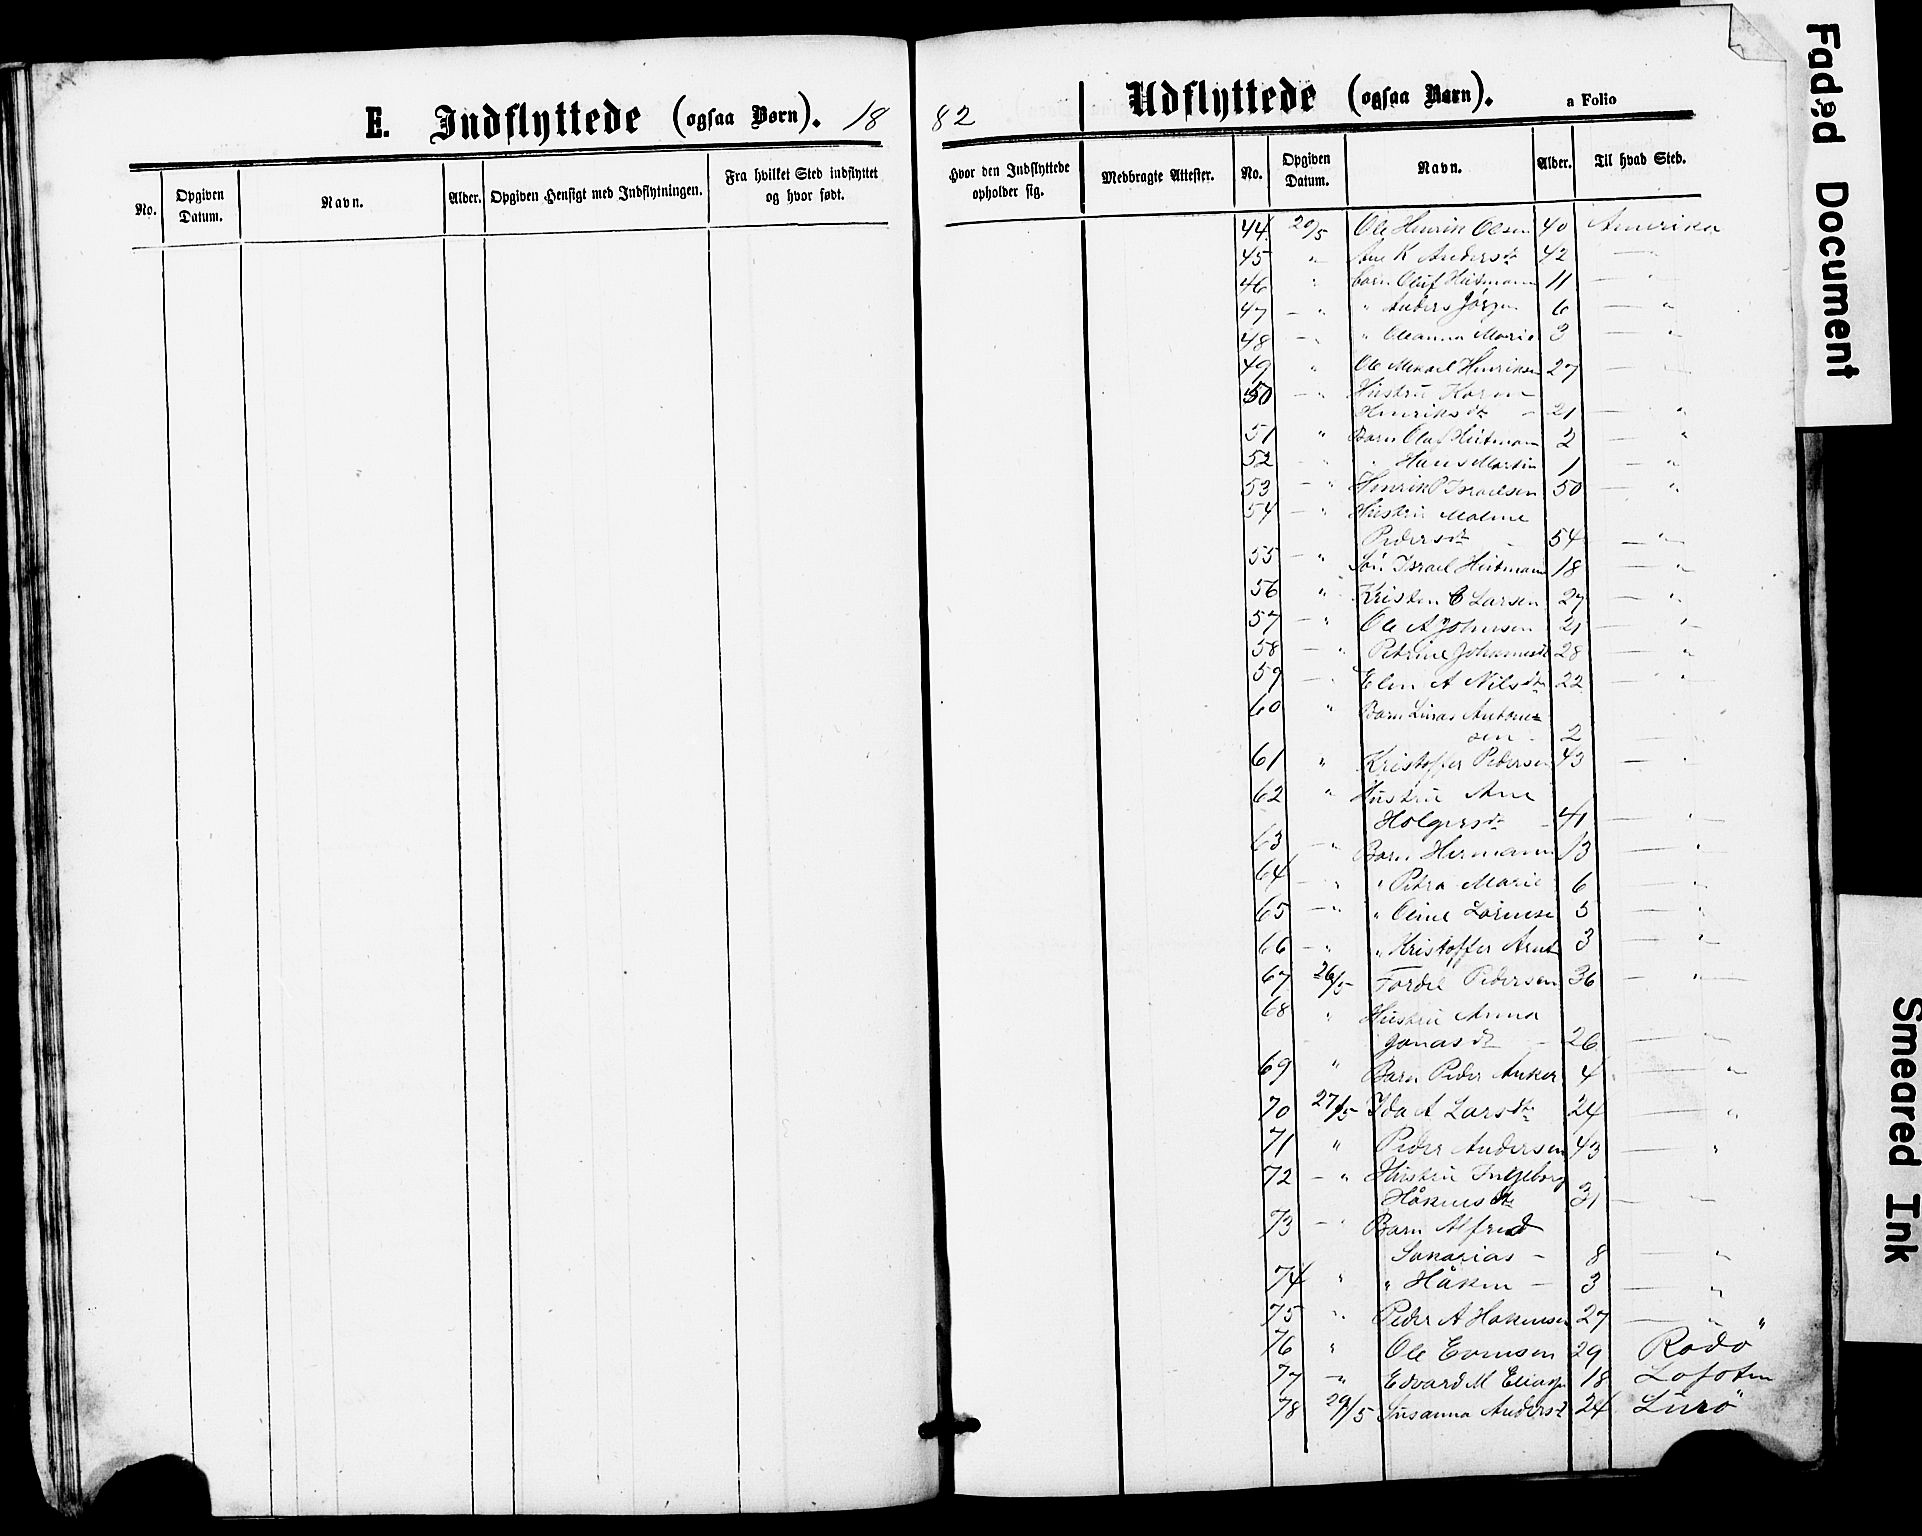 E. Indflyttede (ogsaa Børn). 18
No. Opgiven Datum. Navn. Alder. Opgiven Hensigt med Indflytningen. Fra hvilket Sted indflyttet og hvor født.
82 Udflyttede (ogsaa Børn). a Folio
Hvor den Indflyttede opholder sig. Medbragte Attester. No. Opgiven Datum. Navn. Alder. Til hvad Sted.
44. 20/5 Ole Henrik Olsen 40 Amerika
45 " Ane K Andersdr 42 — "
46 " barn Oluf Heitmann 11 — "
47 — " " Anders Jørgen 6 — "
48 — " " Oleanna Marie 3 — "
49 " Ole Mikael Henriksen 27 — "
50 — " Hustru Karen
Henriksdr — 21 — "
51 " Barn Olaf Heitmann 2 — "
52 — " " Hans Martin 1 — "
53 — " Henrik P Israelsen 50 — "
54 — " Hustru Malene
Pedersdr — 54 — "
55 — " Søn Israel Heitmann 18 — "
56 " Kristen C Larsen 27 — "
57 — " Ole A Johnsen 21 — "
58 — " Petrine Johannesdr 28 — "
59 — " Elen A Nilsdr 22 — "
60 " Barn Antonsen
2 — "
61 " Kristoffer Pedersen 43 — "
62 " Hustru Ane
Holgersdr — 41 — "
63 — " Barn Hermann 13 — "
64 — " " Petra Marie 6 — "
65 — " " Oline 5 — "
66 — " " Kristoffer Arnt 3 — "
67 26/5 Tordel Pedersen 36 — "
68 " Hustru Anna
Jonasdr — 26 — "
69 " Barn Peder Anker 4 — "
70 27/5 Ida A Larsdr 24 — "
71 " Peder Andersen 43 — "
72 — " Hustru Ingeborg
Håkensdr 31 — "
73 — " Barn Alfred
Sakarias — 8 — "
74 " " Håken — 3 — "
75 " Peder A Hakensen 27 — "
76 " Ole Evensen 29 Rødø
77 — " Edvard M Eliasen 18 Lofoten
78 29/5 Susanna Andersdr 24 Lurø
Faded Document
Smeared Ink